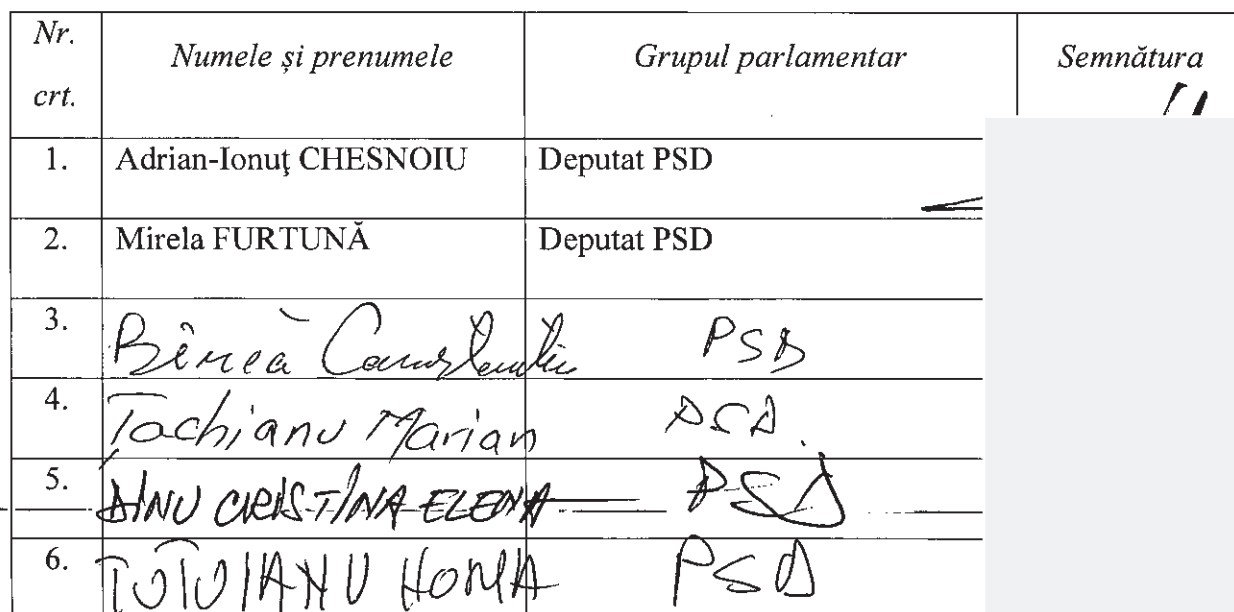 Nr. crt. Numele și prenumele Grupul parlamentar Semnătura
1. Adrian-Ionuţ CHESNOIU Deputat PSD
2. Mirela FURTUNĂ Deputat PSD
3. Bîrcă Constantin PSD
4. Tachianu Marian PSD.
5. DINU CRISTINA ELENA PSD
6. TUTUIANU HORIA PSD